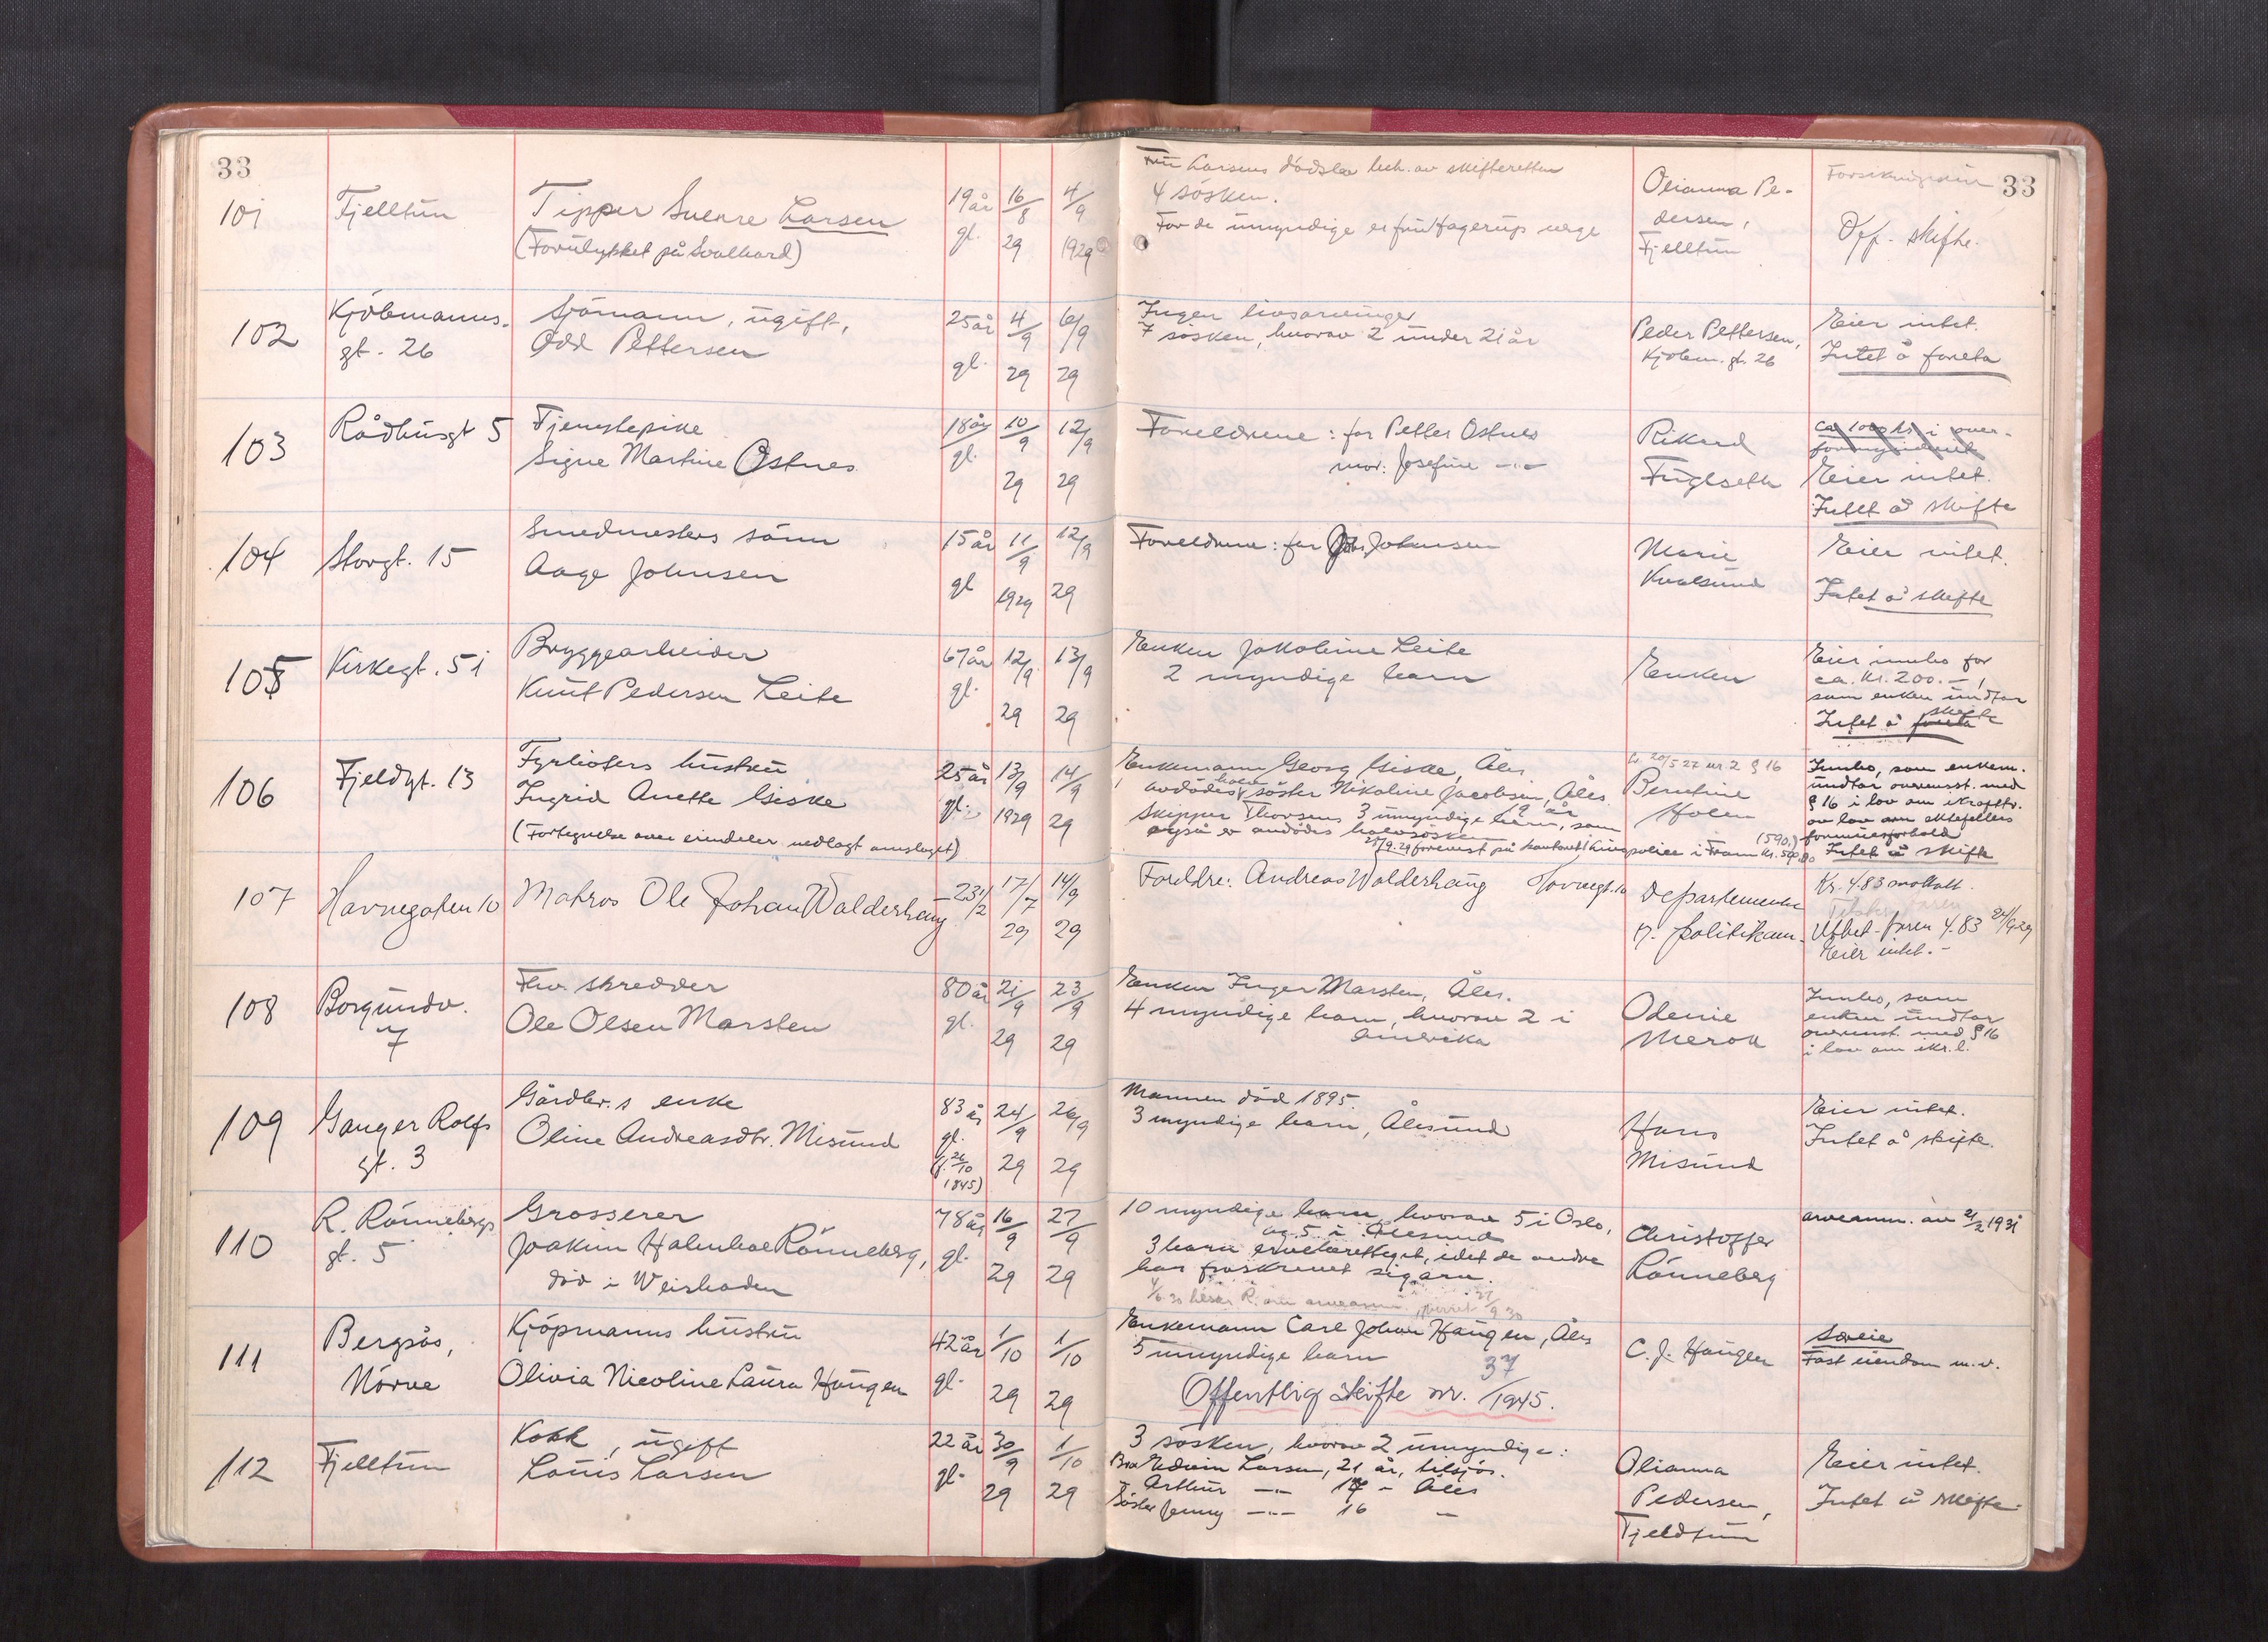 33
33
101
Fjelltun
Tipper Sverre Larsen
(Forulykket på Svalbard)
19 år
gl.
16/8
29
4/9
1929
Fru Larsens dödsbo beh. av skifteretten
4 sösken.
For de umyndige er fru Hagerup verge
Olianna Pe-
dersen,
Fjelltun
Off. skifte.
102
Kjöbmanns.
gt. 26
Sjömann, ugift,
Odd Pettersen
25 år
gl.
4/9
29
6/9
29
Ingen livsarvinger
7 sösken, hvorav 2 under 21 år
Peder Pettersen,
Kjöbm. gt. 26
Eier intet.
Intet å foreta
103
Rådhusgt 5
Tjenestepike
Signe Martine Ostnes
18 år
gl.
10/9
29
12/9
29
Foreldrene: far Petter Ostnes
mor: Josefine -"-
Rikard
Fuglseth
ca 1000 kr i over-
formynderiet
Eier intet.
Intet å skifte
104
Storgt. 15
Smedmesters sönn
Aage Johnsen
15 år
gl
11/9
1929
12/9
29
Foreldrene: far Johs. Johnsen
Marie
Kvalsund
Eier intet.
Intet å skifte
105
Kirkegt. 51
Bryggearbeider
Knut Pedersen Leite
67 år
gl.
12/9
29
13/9
29
Enken Jakobine Leite
2 myndige barn
Enken
Eier innbo for
ca. kr. 200.-,
som enken undtar
Intet å foreta skifte
106
Fjeldgt. 13
Fyrböters hustru
Ingrid Anette Giske
(Fortegnelse over eiendeler nedlagt omslaget)
25 år
gl.
13/9
1929
14/9
29
Enkemann Georg Giske, Åles.
avdödes halvsöster Nikoline Jacobsen, Åles. 19 år
Skipper Thorsens 3 umyndige barn, som
også er avdödes halvsösken
25/9.29 forevist på kontoret livspolice i Fram kr. 500.00 (590.)
L. 20/5 27 nr. 2 § 16
Berntine
Holen
Innbo, som enkem.
undtar overensst. med
§ 16 i lov om ikrafttr.
av lov om ektefellers
formuesforhold
Intet å skifte
107
Havnegaten 10
Matros Ole Johan Walderhaug
23 1/2
17/7
29
14/9
29
Foreldre: Andreas Walderhaug Havnegt. 10
Departementet
v. politikam.
Kr. 4.83 mottatt.
Utbet. faren 4.83 24/9 29
Eier intet.-
108
Borgundv.
7
Fhv. skredder
Ole Olsen Marsten
80 år
gl.
21/9
29
23/9
29
Enken Inger Marsten, Åles.
4 myndige barn, hvorav 2 i
Amerika
Odenie
Merok
Innbo, som
enken undtar
overenst. med § 16
i lov om ikr. l.
109
Ganger Rolfs
gt. 3
Gårdbr.s enke
Oline Andreasdtr. Misund
83 år
gl.
(f. 26/10
1845)
24/9
29
26/9
29
Mannen död 1895.
3 myndige barn, Ålesund
Hans
Misund
Eier intet.
Intet å skifte.
110
R. Rönnebergs
gt. 5
Grosserer
Joakim Holmboe Rönneberg,
död i Weisbaden
78 år
gl.
16/9
29
27/9
29
10 myndige barn, hvorav 5 i Oslo,
og 5 i Ålesund
3 barn arveberettiget, idet de andre
har fraskrevet sig arv.
Christoffer
Rönneberg
arveanm. av 21/2 1931
111
Bergsås,
Nörve
Kjöpmanns hustru
Olivia Nicoline Laura Haugen
42 år
gl.
1/10
29
1/10
29
Enkemann Carl Johan Haugen, Åles
5 umyndige barn
Offentlig skifte nr. 37/1945.
C. J. Haugen
Særeie
Fast eiendom m.v.
112
Fjelltun
Kokk, ugift
Louis Larsen
22 år
gl.
30/9
29
1/10
29
3 sösken, hvorav 2 umyndige:
Bror Edwin Larsen, 21 år, tilsjös.
Arthur -"- 17 - Åles
Söster Jenny -"- 16 -
Olianna
Pedersen,
Fjeldtun
Eier intet.
Intet å skifte.